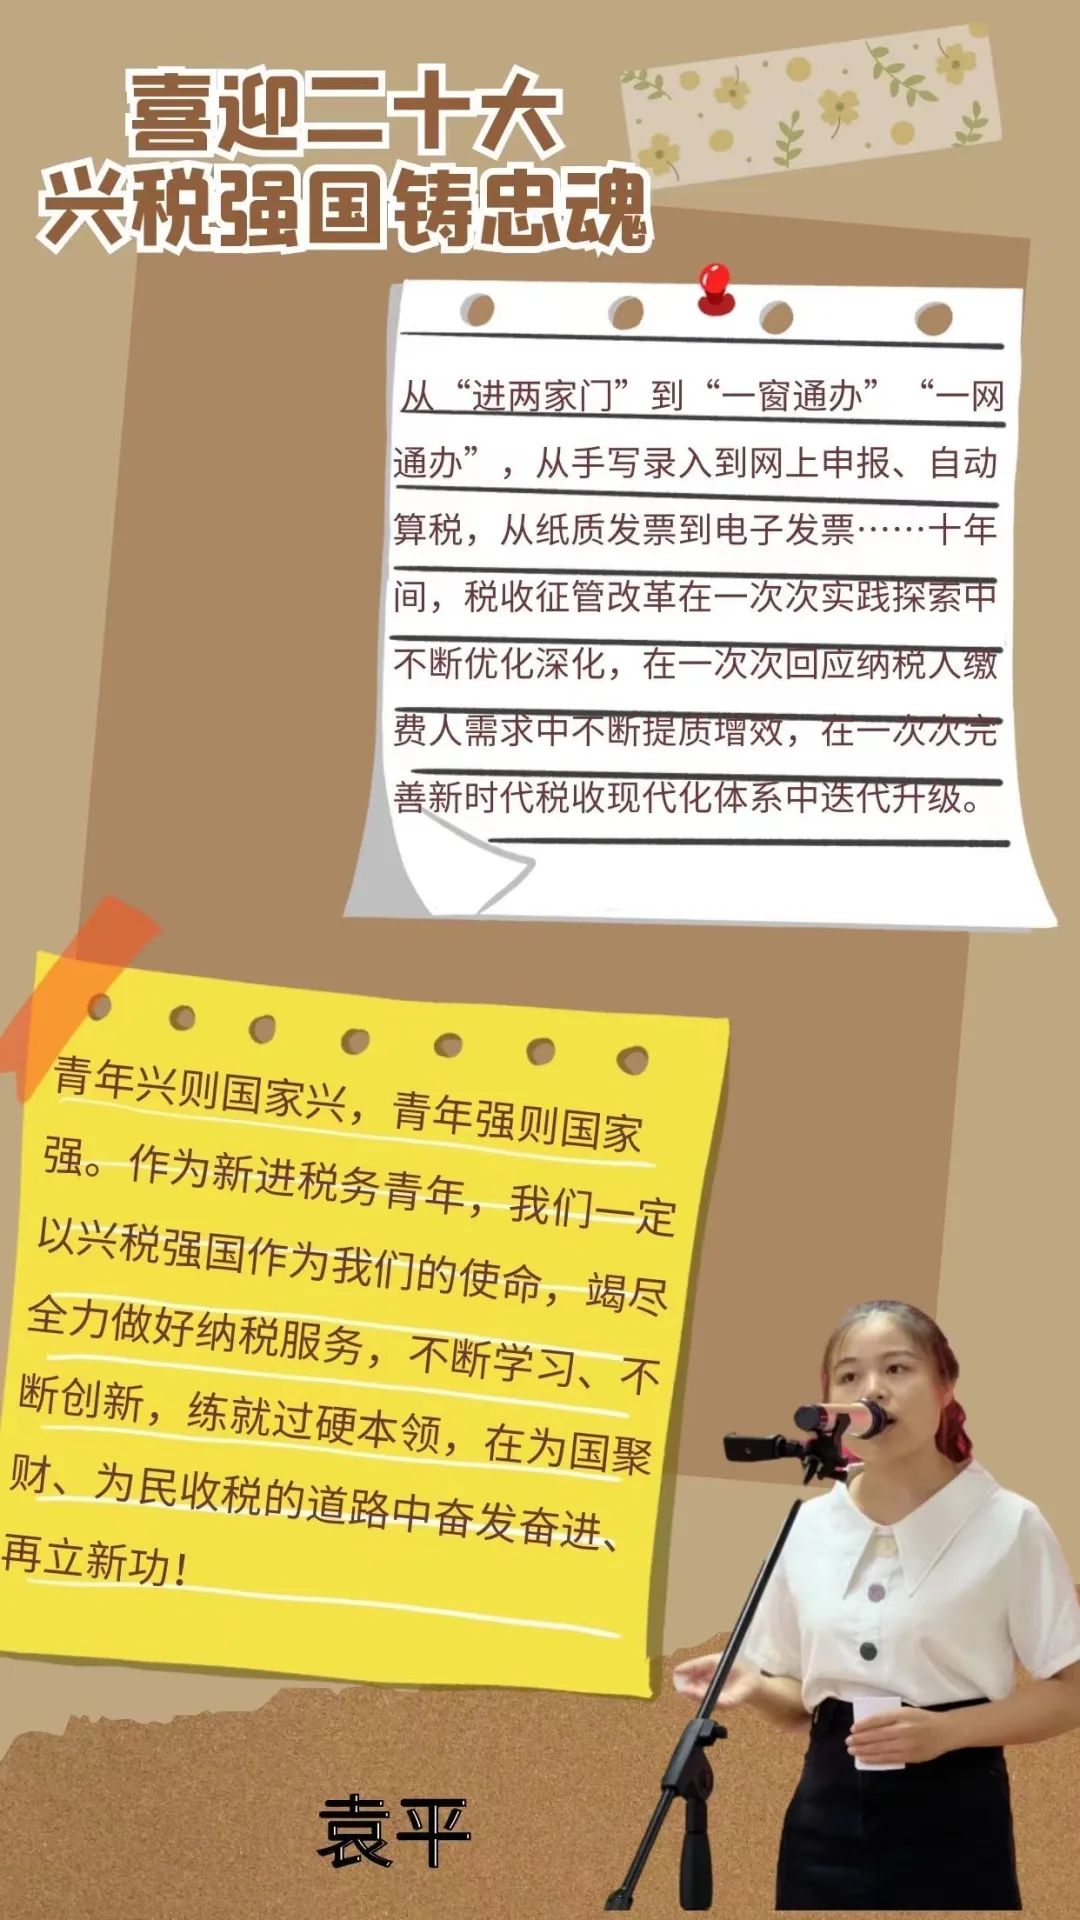 喜迎二十大
兴税强国铸忠魂
从“进两家门”到“一窗通办”“一网
通办”，从手写录入到网上申报、自动
算税，从纸质发票到电子发票……十年
间，税收征管改革在一次次实践探索中
不断优化深化，在一次次回应纳税人缴
费人需求中不断提质增效，在一次次完
善新时代税收现代化体系中迭代升级。
青年兴则国家兴，青年强则国家
强。作为新进税务青年，我们一定
以兴税强国作为我们的使命，竭尽
全力做好纳税服务，不断学习、不
断创新，练就过硬本领，在为国聚
财、为民收税的道路中奋发奋进、
再立新功！
袁平